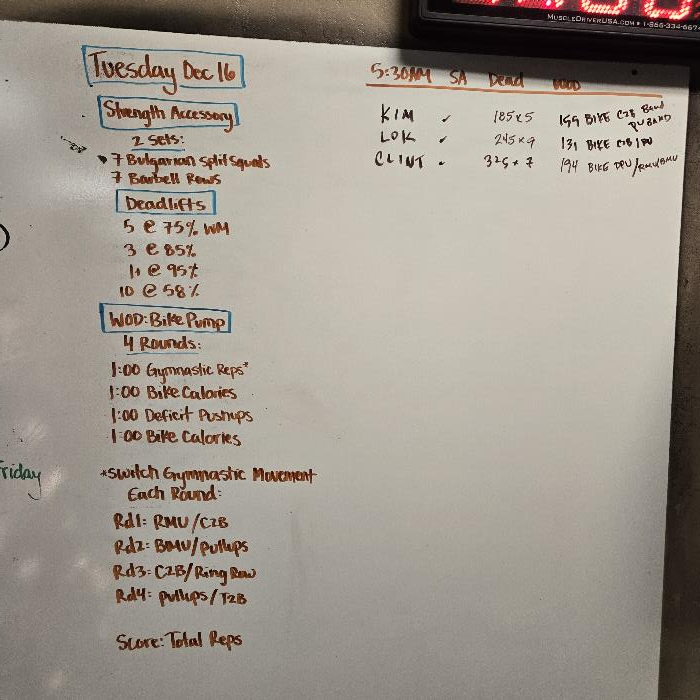 MUSCLEDRIVERUSA.COM • 1-866-334-667
Tuesday Dec 16
Strength Accessory
2 Sets:
• 7 Bulgarian Split Squats
7 Barbell Rows
Deadlifts
5 @ 75% WM
3 @ 85%
1+ @ 95%
10 @ 58%
WOD: Bike Pump
4 Rounds:
1:00 Gymnastic Reps*
1:00 Bike Calories
1:00 Deficit Pushups
1:00 Bike Calories
*Switch Gymnastic Movement
Each Round:
Rd1: RMU/C2B
Rd2: BMU/Pullups
Rd3: C2B/Ring Row
Rd4: Pullups/T2B
Score: Total Reps
Friday
5:30AM SA Dead WOD
KIM ✓ 185x5 159 BIKE C2B Band
PU BAND
LOK ✓ 245x9 131 BIKE C2B/PU
CLINT ✓ 325x7 194 BIKE DPU/RMU/BMU